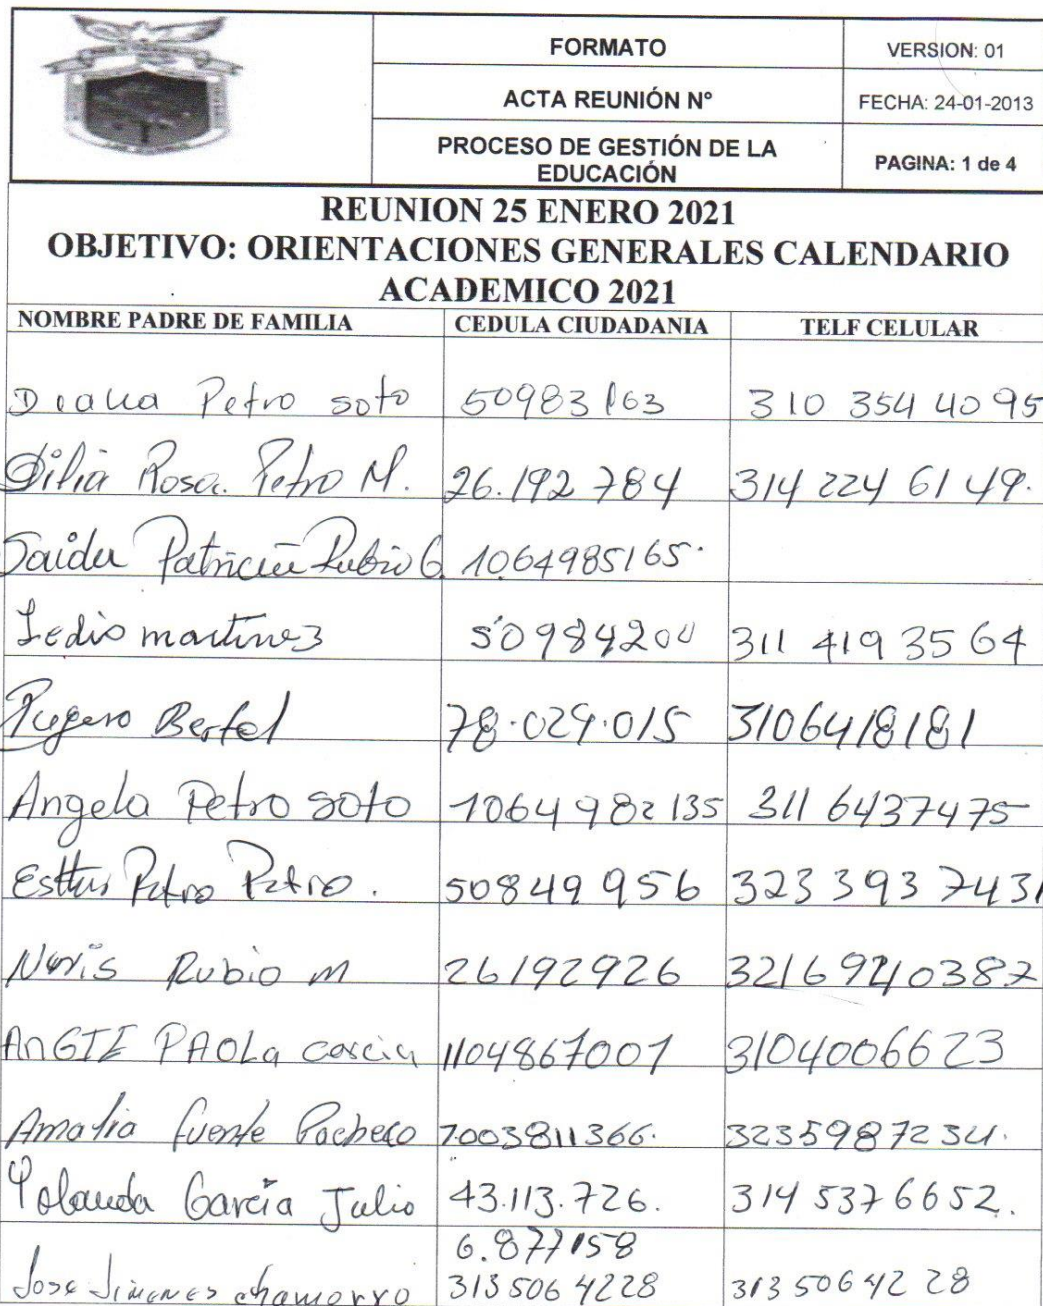 FORMATO VERSION: 01
ACTA REUNIÓN N° FECHA: 24-01-2013
PROCESO DE GESTIÓN DE LA
EDUCACIÓN PAGINA: 1 de 4
REUNION 25 ENERO 2021
OBJETIVO: ORIENTACIONES GENERALES CALENDARIO
ACADEMICO 2021
NOMBRE PADRE DE FAMILIA CEDULA CIUDADANIA TELF CELULAR
Diana Petro soto 50983163 310 354 40 95
Dilia Rosa Petro M. 26.192 784 314 224 61 49.
Saida Patricia Rubio G 1064985165.
Ledis martinez 50984200 311 419 35 64
Bertel 78.029.015 3106418181
Angela Petro soto 1064982135 311 6437475
Petro Petro. 50849 956 323 393 7431
Rubio m 26192926
AnGIE PAOLa 1104867001 3104006623
Amalia fuente Pacheco 1003811366. 3235987234.
Yolanda Garcia Julio 43.113.726. 314 5376652.
6.877158
Jose Jimenes chamorro 313 506 4228 313 506 42 28